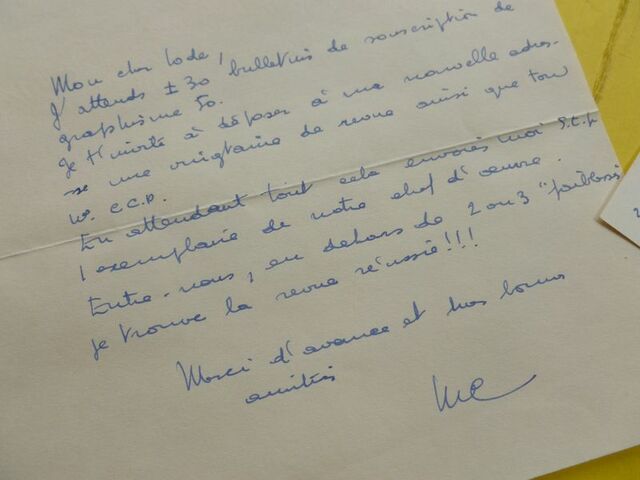 Mon cher Lode,
J'attends ± 30 bulletins de souscription de
graphisme 50.
Je t'invite à déposer à ma nouvelle adres-
se une vingtaine de revue ainsi que ton
n° C.C.P.
En attendant tout cela envoies moi S.t.p
1 exemplaire de notre chef d'œuvre.
Entre-nous, en dehors de 2 ou 3 "faibless
je trouve la revue réussie!!!
Merci d'avance et mes bonnes
amitiés